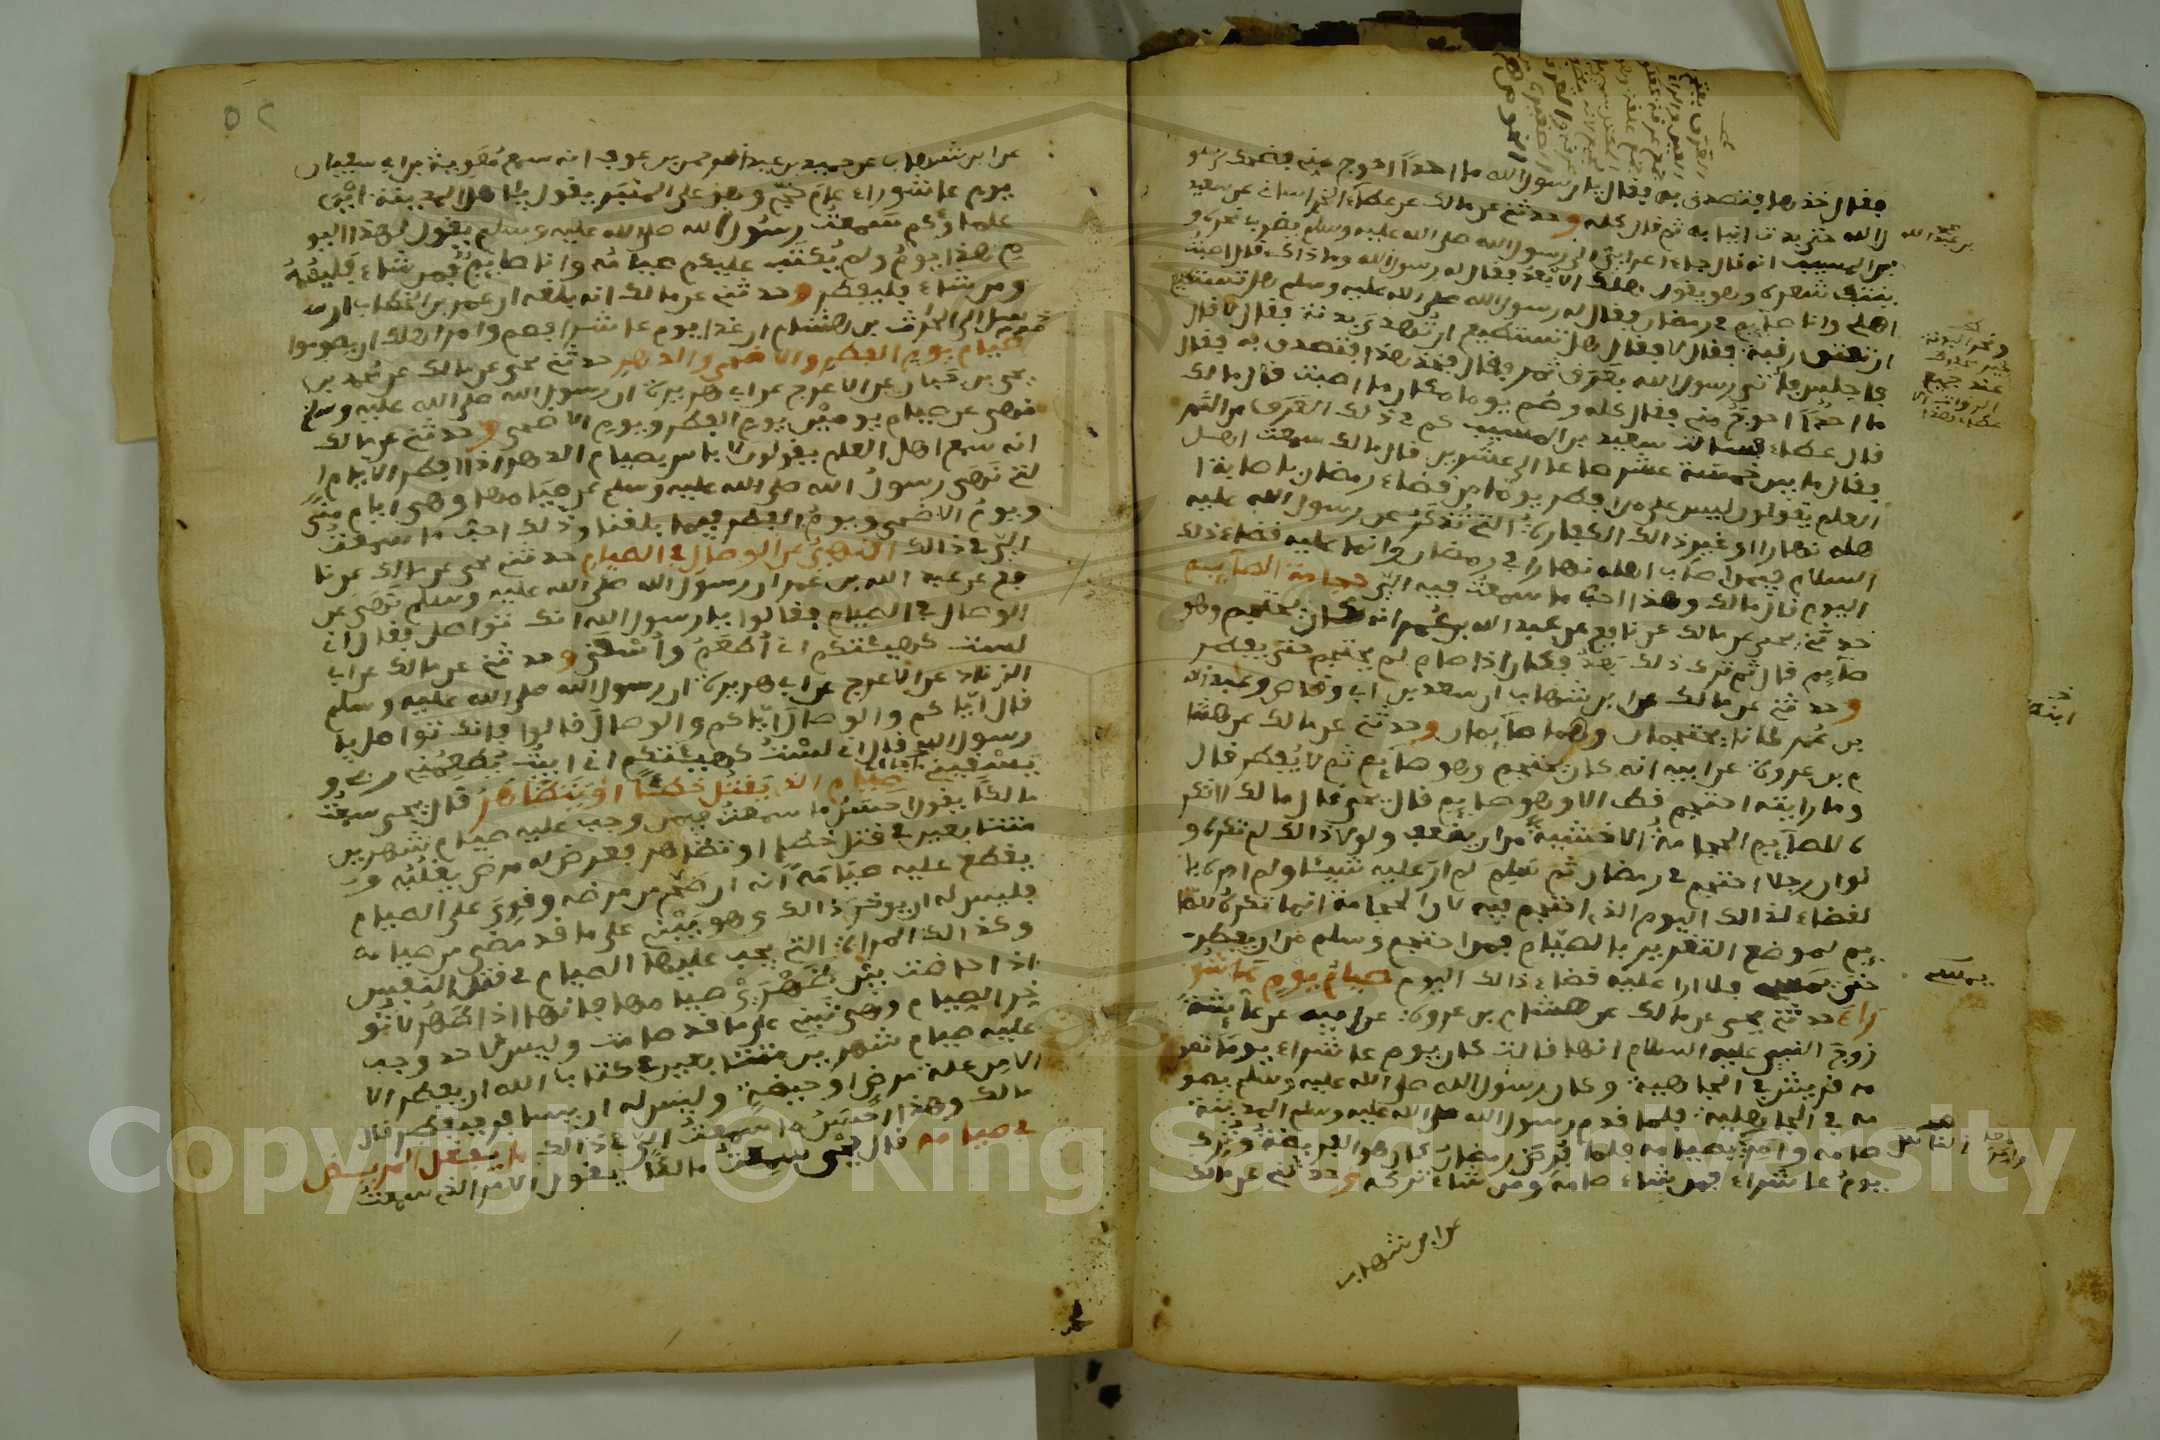 فقال خذها فتصدق به فقال يا رسول الله ما احدا احوج مني فضحك رسو
ل الله حتى بدت انيابه ثم قال كله وحدثني عن مالك عن عطاء الخراساني عن سعيد
بن المسيب انه قال جاء اعرابي الى رسول الله صلى الله عليه وسلم يضرب نحره و
ينتف شعره وهو يقول هلك الابعد فقال له رسول الله وما ذاك قال اصبت
اهلي وانا صايم في رمضان فقال له رسول الله صلى الله عليه وسلم هل تستطيع
ان تعتق رقبة فقال لا فقال هل تستطيع ان تهدي بدنة فقال لا قال
فاجلس فاتي رسول الله بعرق تمر فقال خذ هذا فتصدق به فقال
ما احدا احوج مني فقال كله وصم يوما مكان ما اصبت قال مالك
قال عطاء فسالت سعيد بن المسيب كم في ذلك العرق من التمر
فقال ما بين خمسة عشر صاعا الى عشرين قال مالك سمعت اهل
العلم يقولون ليس على من افطر يوما من قضاء رمضان باصابة ا
هله نهارا او غير ذالك الكفارة التي تذكر عن رسول الله عليه
السلام فيمن اصاب اهله نهارا في رمضان وانما عليه قضاء ذلك
اليوم قال مالك وهذا احب ما سمعت فيه الي حجامة الصايم
حدثني يحيى عن مالك عن نافع عن عبد الله بن عمر انه كان يحتجم وهو
صايم قال ثم ترك ذلك بعد فكان اذا صام لم يحتجم حتى يفطر
وحدثني عن مالك عن ابن شهاب ان سعد بن ابي وقاص وعبد الله
بن عمر كانا يحتجمان وهما صايمان وحدثني عن مالك عن هشا
م بن عروة عن ابيه انه كان يحتجم وهو صايم ثم لا يفطر قال
وما رايته احتجم قط الا وهو صايم قال يحيى قال مالك لا تكر
ه للصايم الحجامة الا خشية من ان يضعف ولولا ذالك لم تكره و
لو ان رجلا احتجم في رمضان ثم سلم لم ار عليه شيئا ولم امره با
لقضاء لذالك اليوم الذي احتجم فيه لان الحجامة انما تكره للصا
يم لموضع التغرير بالصيام فمن احتجم وسلم من ان يفطر
حتى يمسي فلا ارا عليه قضاء ذالك اليوم صيام يوم عاشو
راء حدثني يحيى عن مالك عن هشام بن عروة عن ابيه عن عايشة
زوج النبي عليه السلام انها قالت كان يوم عاشوراء يوما تصو
مه قريش في الجاهلية وكان رسول الله صلى الله عليه وسلم يصو
مه في الجاهلية فلما قدم رسول الله صلى الله عليه وسلم المدينة
صامه وامر بصيامه فلما فرض رمضان كان هو الفريضة وترك
يوم عاشوراء فمن شاء صامه ومن شاء تركه وحدثني عن مالك
عن ابن شهاب
بن عبد الله
ابنه
يمسي
الناس
٥٢
عن ابن شهاب عن حميد بن عبد الرحمن بن عوف انه سمع معوية بن ابي سفيان
يوم عاشوراء عام حج وهو على المنبر يقول يا اهل المدينة اين
علماؤكم سمعت رسول الله صلى الله عليه وسلم يقول لهذا اليو
م هذا يوم ولم يكتب عليكم صيامه وانا صايم فمن شاء فليصمه
ومن شاء فليفطر وحدثني عن مالك انه بلغه ان عمر بن الخطاب ار
سل الى الحارث بن هشام ان غدا يوم عاشوراء فصم وامر اهلك ان يصوموا
صيام يوم الفطر والاضحى والدهر حدثني يحيى عن مالك عن محمد بن
يحيى بن حبان عن الاعرج عن ابي هريرة ان رسول الله صلى الله عليه وسلم
نهى عن صيام يومين يوم الفطر ويوم الاضحى وحدثني عن مالك
انه سمع اهل العلم يقولون لا باس بصيام الدهر اذا افطر الايام ا
لتي نهى رسول الله صلى الله عليه وسلم عن صيامها وهي ايام منى
ويوم الاضحى ويوم الفطر فيما بلغنا وذلك احب ما سمعت
الي في ذالك النهي عن الوصال في الصيام حدثني يحيى عن مالك عن نا
فع عن عبد الله بن عمر ان رسول الله صلى الله عليه وسلم نهى عن
الوصال في الصيام فقالوا يا رسول الله انك تواصل فقال اني
لست كهيئتكم اني اطعم واسقى وحدثني عن مالك عن ابي
الزناد عن الاعرج عن ابي هريرة ان رسول الله صلى الله عليه وسلم
قال اياكم والوصال اياكم والوصال قالوا فانك تواصل يا
رسول الله قال اني لست كهيئتكم اني ابيت يطعمني ربي و
يسقيني صيام الذي يقتل خطئا او يتظاهر قال يحيى سمعت
مالكا يقول احسن ما سمعت فيمن وجب عليه صيام شهرين
متتابعين في قتل خطا او تظاهر فعرض له مرض يغلبه و
يقطع عليه صيامه انه ان صح من مرضه وقوي على الصيام
فليس له ان يوخر ذالك وهو يبني على ما قد مضى من صيامه
وكذالك المراة التي يجب عليها الصيام في قتل النفس
اذا حاضت بين ظهري صيامها فانها اذا طهرت لا تو
خر الصيام وهي تبني على ما قد صامت وليس لاحد وجب
عليه صيام شهرين متتابعين في كتاب الله ان يفطر الا
الا من علة مرض او حيضة وليس له ان يسافر فيفطر قال
مالك وهذا احسن ما سمعت الي في ذالك ما يفعل المريض
في صيامه قال يحيى سمعت مالكا يقول الامر الذي سمعت
Copyright © King Saud University